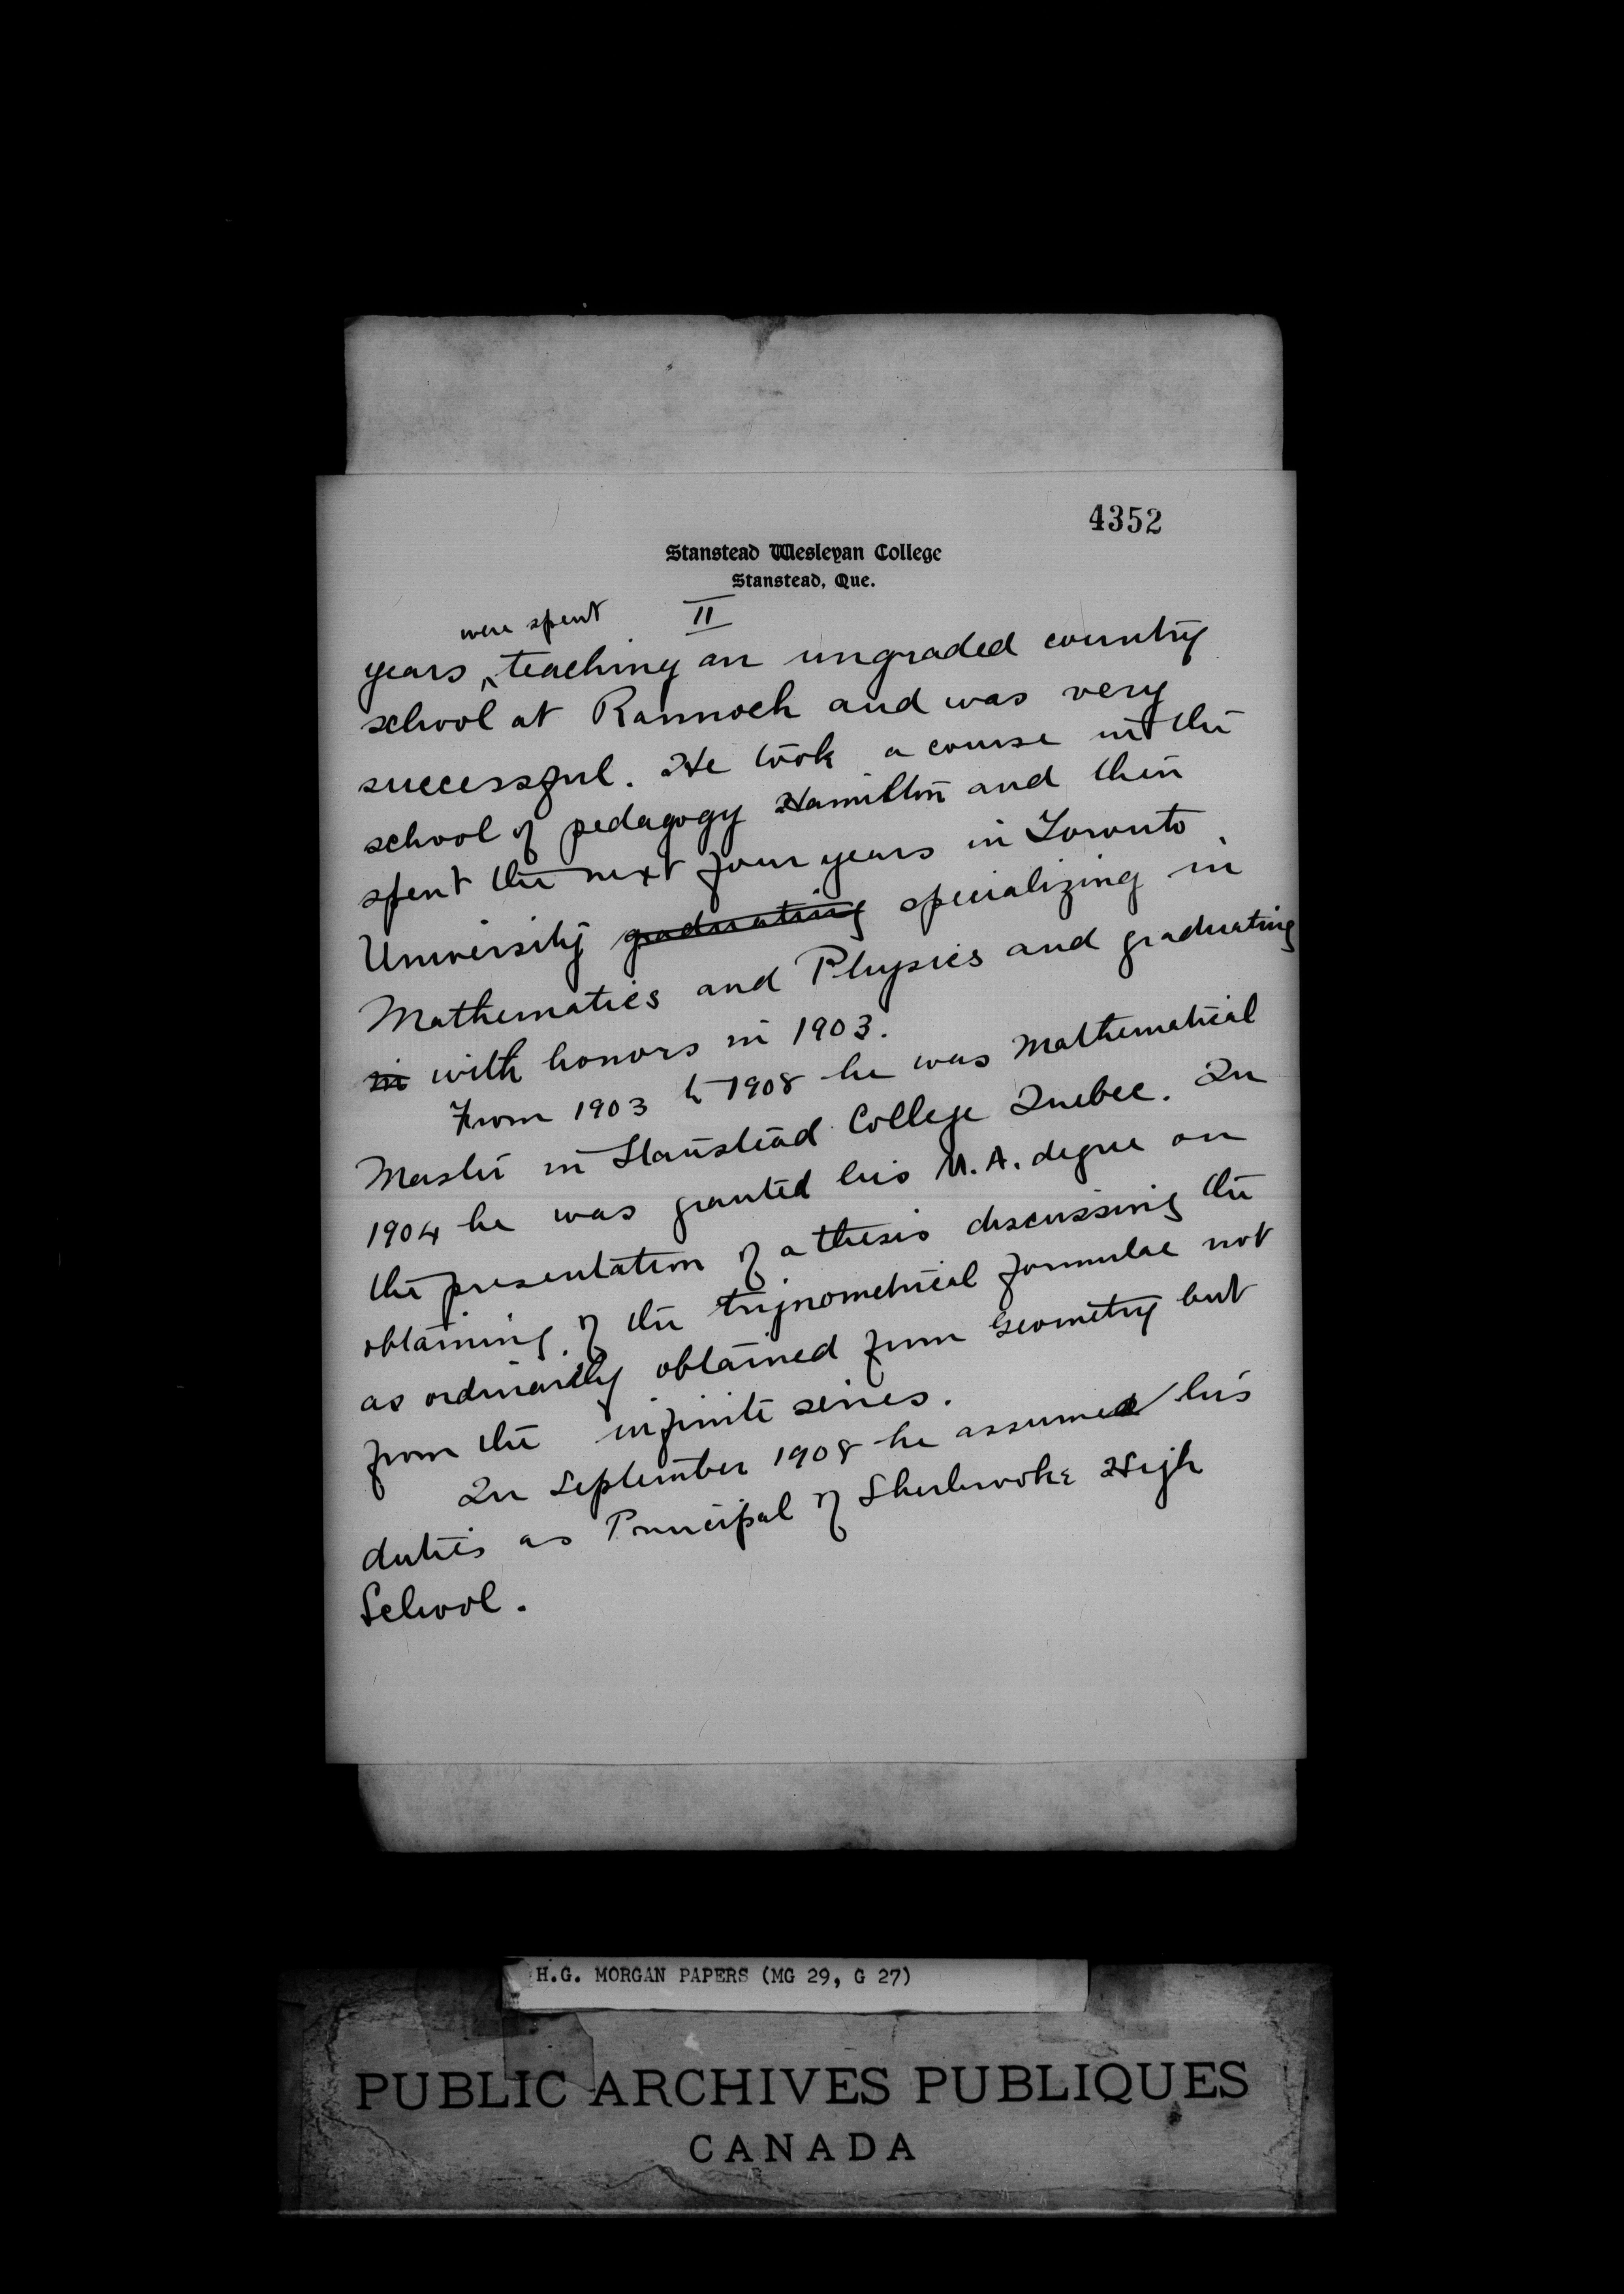 4352
Stanstead Wesleyan College
Stanstead, Que.
II
were spent
years ‸ teaching an ungraded country
school at Rannoch and was very
successful. He took a course in the
school of pedagogy Hamilton and then
spent the next four years in Toronto
University graduating specializing in
Mathematics and Physics and graduating
in with honors in 1903.
From 1903 to 1908 he was Mathematical
Master in Stanstead College Quebec. In
1904 he was granted his M.A. degree on
the presentation of a thesis discussing the
obtaining of the trignometrical formulae not
as ordinarily obtained from Geometry but
from the infinite series.
In September 1908 he assumed his
duties as Principal of Sherbrooke High
School.
H.G. MORGAN PAPERS (MG 29, G 27)
PUBLIC ARCHIVES PUBLIQUES
CANADA